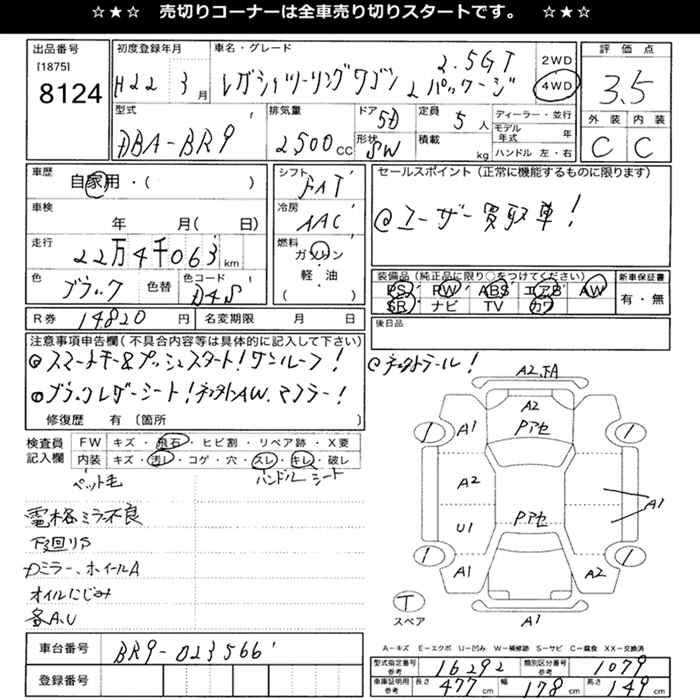 ☆★☆ 売切りコーナーは全車売り切りスタートです。 ☆★☆
出品番号
[1875]
8124
初度登録年月
H22 3月
車名・グレード
2.5GT
レガシィツーリングワゴン Lパッケージ
2WD
4WD
評価点
3.5
外装 内装
C C
型式
DBA-BR9
排気量
2,500cc
ドア
5D
形状
SW
定員
5人
積載
kg
ディーラー・並行
モデル年式 年
ハンドル 左・右
車歴
自家用・( )
車検
年 月( 日)
走行
22万4千063km
色
ブラック
色替
色コード
D4S
シフト
FAT
冷房
AAC
燃料
ガソリン
軽・油
( )
セールスポイント(正常に機能するものに限ります)
@ユーザー買取車!
装備品(純正品に限り○をつけてください)
PS PW ABS エアB AW
SR ナビ TV カワ
新車保証書
有・無
後日品
R券 14820円
名変期限 月 日
注意事項申告欄(不具合内容等は具体的に記入して下さい)
@スマートキー&プッシュスタート!サンルーフ!
@ブラックレザーシート!社外AW、マフラー!
@ネオトラール!
修復歴 有 〔箇所 〕
検査員記入欄
FW キズ・飛石・ヒビ割・リペア跡・X要
内装 キズ・汚レ・コゲ・穴・スレ・キレ・破レ
ペット毛 ハンドル シート
電格ミラ不良
下廻りサ
カミラー、ホイールA
オイルにじみ
各A.U
A2
A2
Pアセ
A1
1
1
A2
U1
Pアセ
A1
1
1
A1
A2
T
スペア
A1
A-キズ E-エクボ U-凹み W-補修跡 S-サビ C-腐食 XX-交換済
車台番号
BR9-023566
登録番号
型式指定番号 参考
16292
類別区分番号 参考
1079
車庫証明用 参考
長さ 477cm 幅 178cm 高さ 149cm